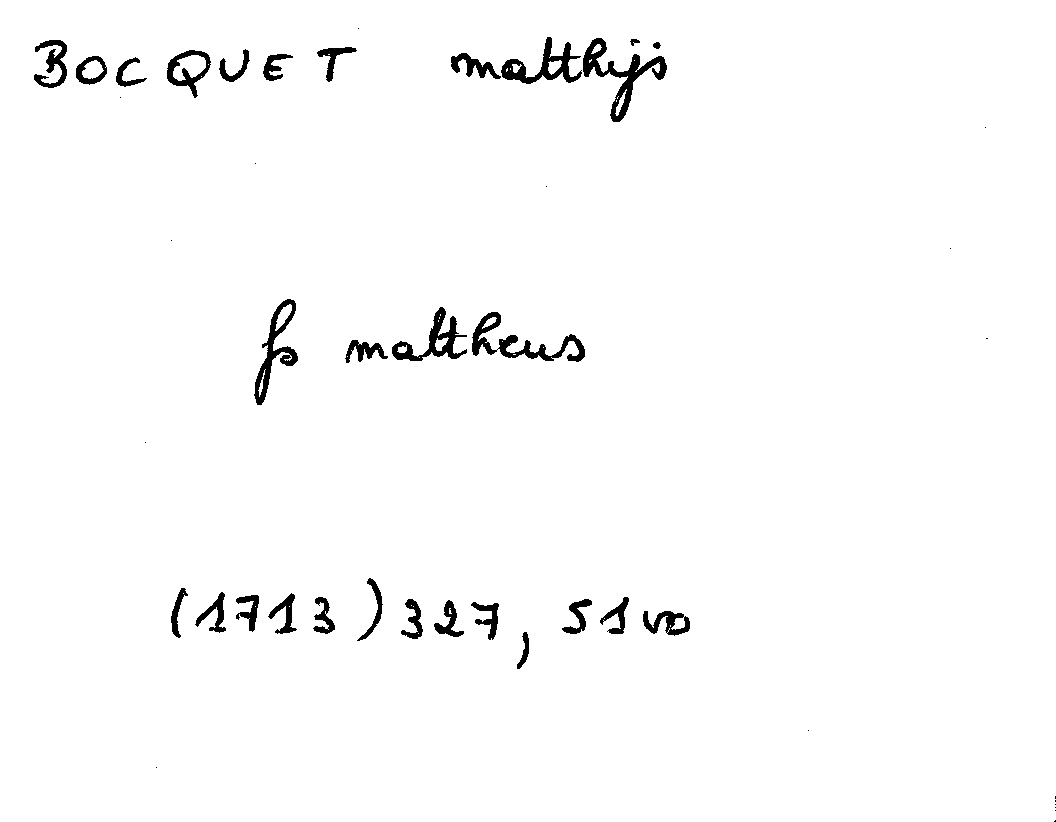 BOCQUET matthijs
fs mattheus
(1713) 327, 51vo